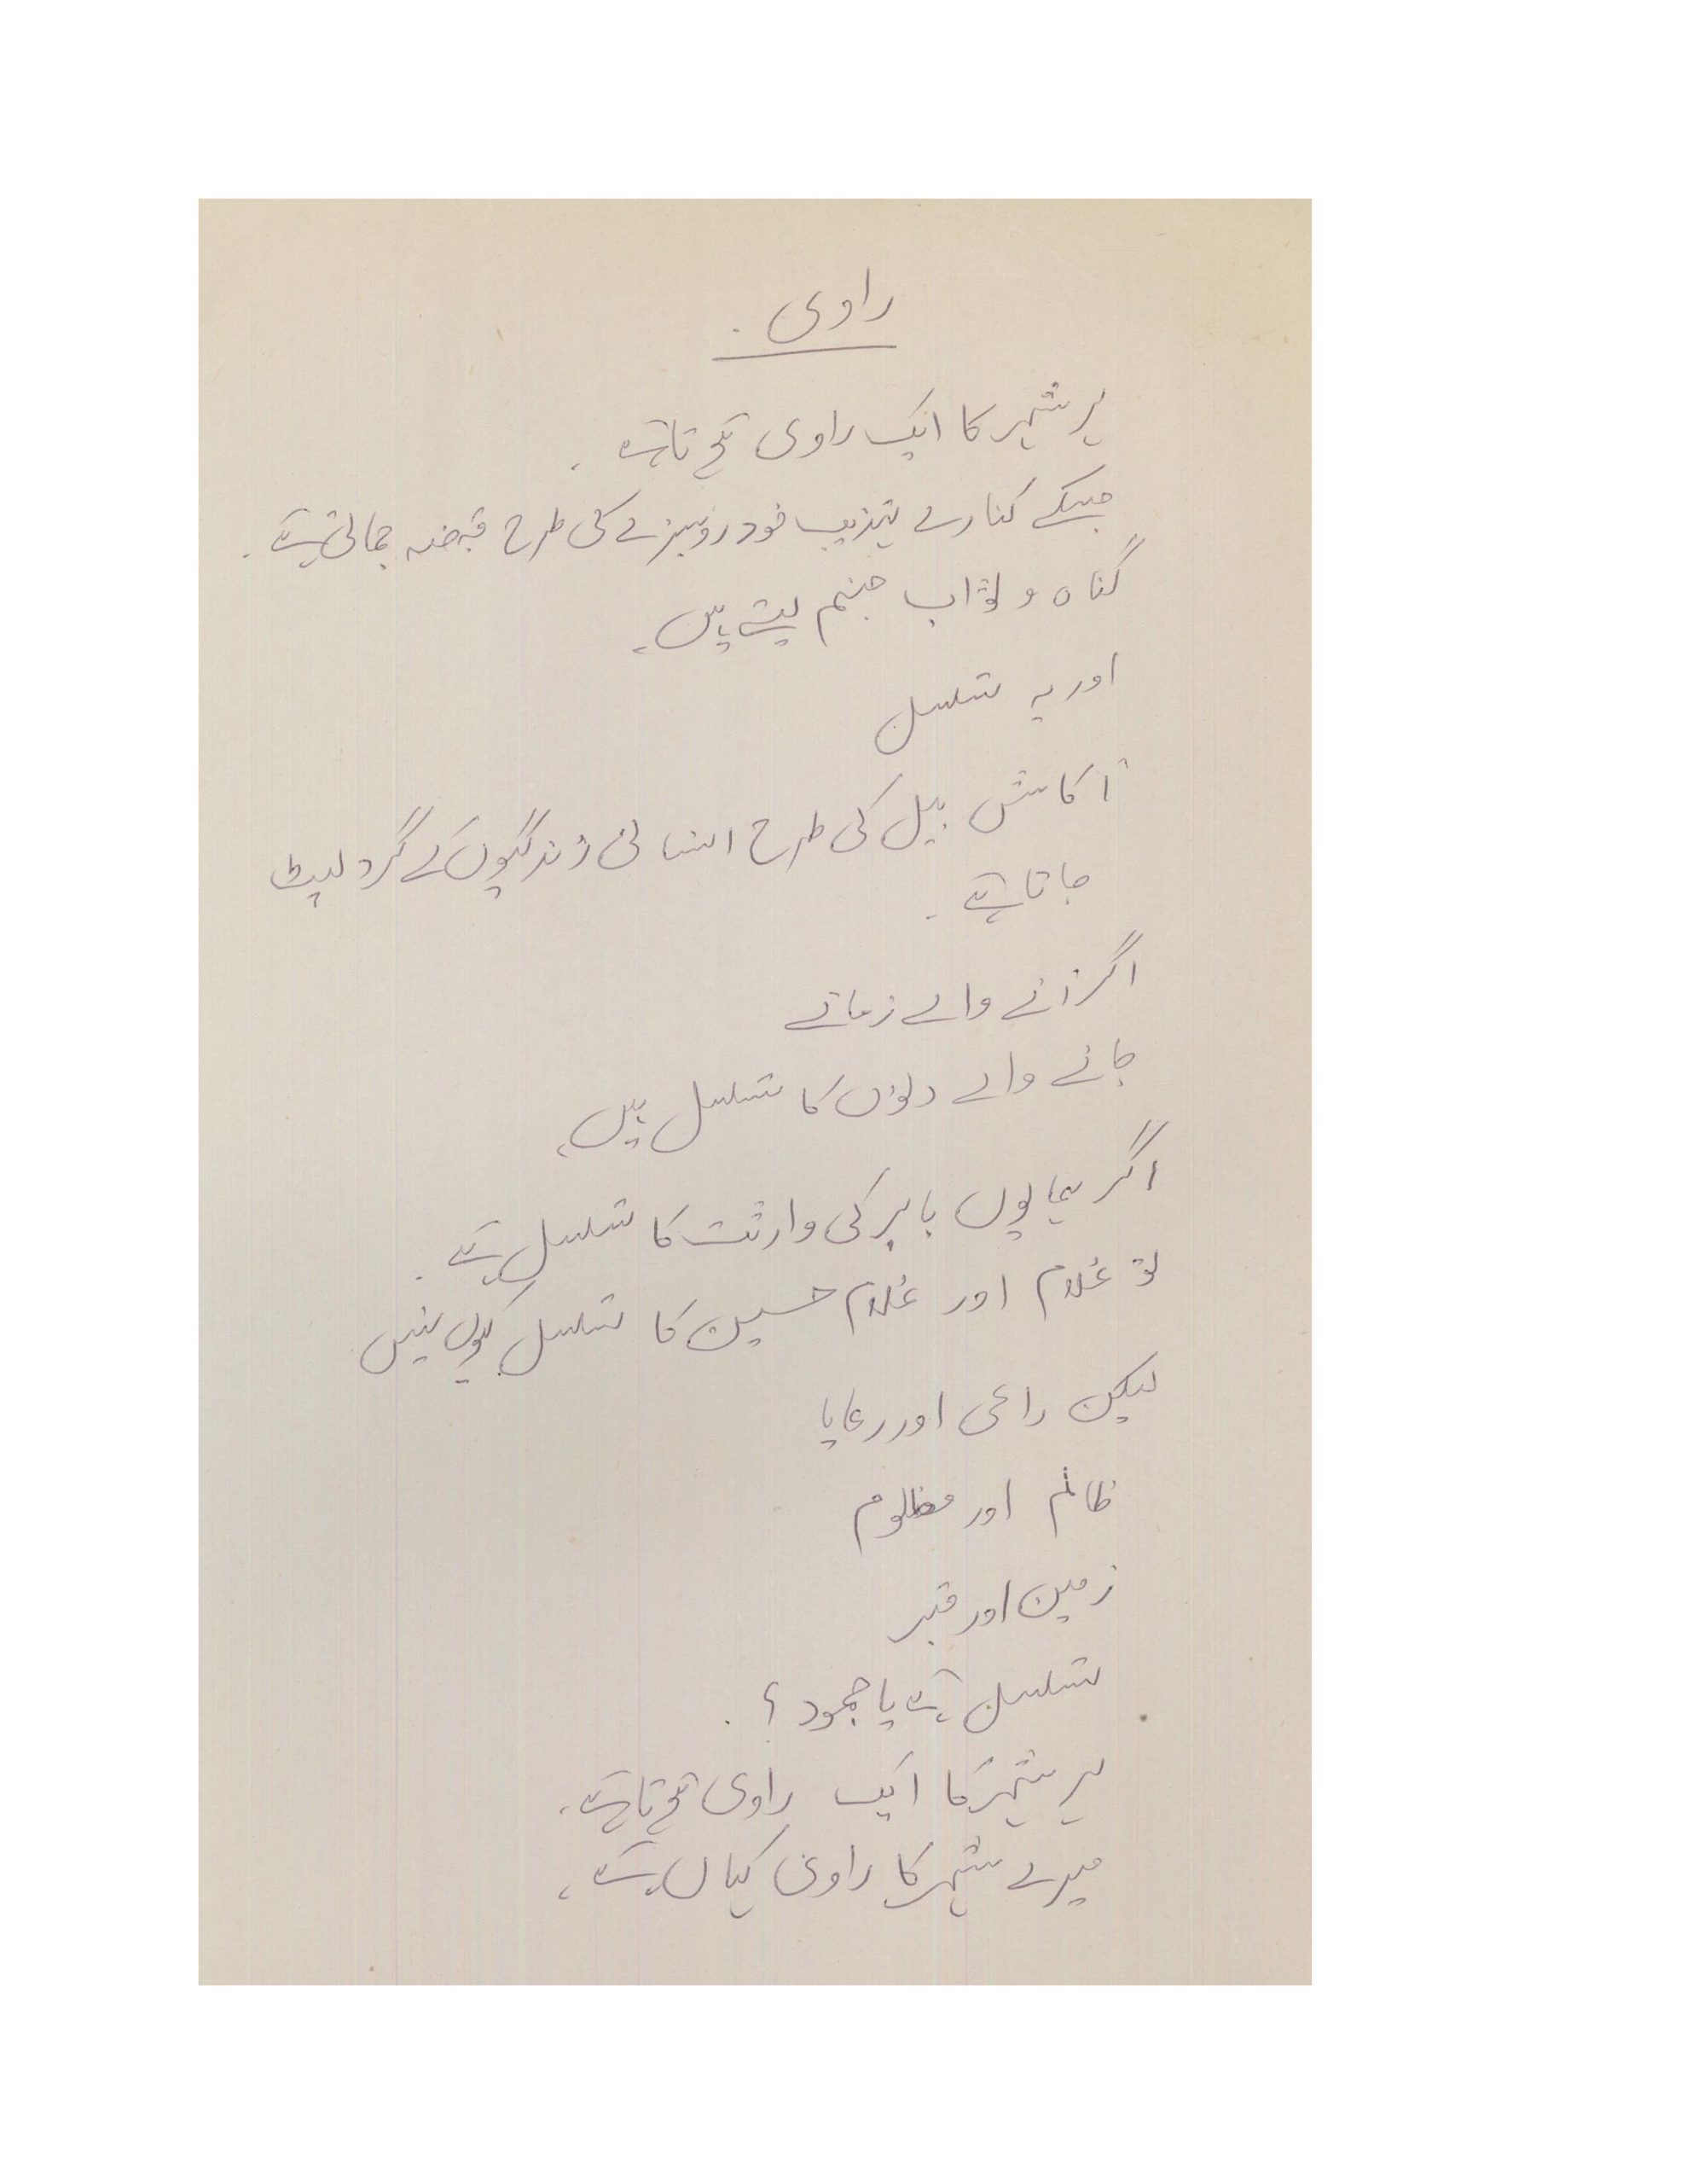 راوی۔
ہر شہر کا ایک راوی ہوتا ہے۔
جسکے کنارے تہذیب خود رو سبزے کی طرح قبضہ جمالیتی ہے۔
گناہ و ثواب جنم لیتے ہیں۔
اور یہ تسلسل
آکاش بیل کی طرح انسانی زندگیوں کے گرد لپٹ
جاتا ہے۔
اگر آنے والے زمانے
جانے والے دنوں کا تسلسل ہیں۔
اگر ہمایوں بابر کی وارثت کا تسلسل ہے۔
تو غلام اور غلام حسین کا تسلسل کیوں نہیں
لیکن راعی اور رعایا
ظالم اور مظلوم
زمین اور قبر
تسلسل ہے یا جمود؟۔
ہر شہر کا ایک راوی ہوتا ہے۔
میرے شہر کا راوی کہاں ہے۔